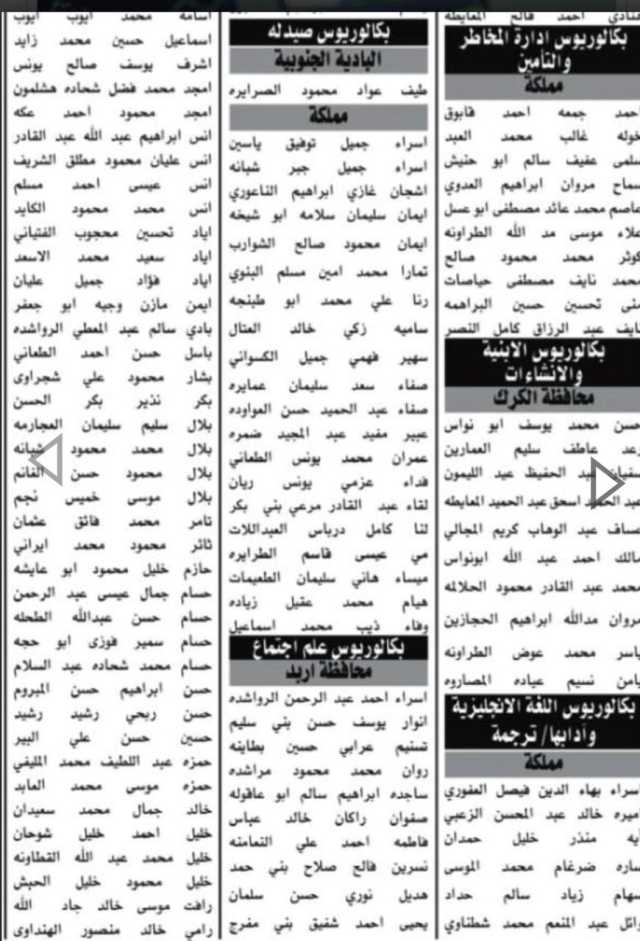 احمد فالح المعايطه
بكالوريوس ادارة المخاطر
والتأمين
مملكة
احمد جمعه احمد قابوق
خوله غالب محمد العبد
سلمى عفيف سالم ابو حنيش
سماح مروان ابراهيم العدوي
عاصم محمد عائد مصطفى ابو عسل
علاء موسى مد الله الطراونه
كوثر محمد محمود صالح
محمد نايف مصطفى حياصات
تحسين حسين البراهمه
نايف عبد الرزاق كامل النسر
بكالوريوس الابنية
والانشاءات
محافظة الكرك
حسن محمد يوسف ابو نواس
رعد عاطف سليم العمارين
عبد الحفيظ عبد الليمون
عبد اسحق عبد الحميد المعايطه
عساف عبد الوهاب كريم المجالي
مالك احمد عبد الله ابونواس
محمد عبد القادر محمود الحلالمه
مروان مدالله ابراهيم الحجازين
ياسر محمد عوض الطراونه
يامن نسيم عياده المصاروه
بكالوريوس اللغة الانجليزية
وآدابها/ ترجمة
مملكة
اسراء بهاء الدين فيصل العفوري
اميره خالد عبد المحسن الزعبي
آيه منذر خليل حمدان
ساره ضرغام محمد الموسى
سهام زياد سالم حداد
وائل عبد المنعم محمد شطناوي
بكالوريوس صيدله
البادية الجنوبية
طيف عواد محمود الصرايره
مملكة
اسراء جميل توفيق ياسين
اسراء جميل جبر شبانه
اشجان غازي ابراهيم الناعوري
ايمان سليمان سلامه ابو شيخه
ايمان محمود صالح الشوارب
تمارا محمد امين مسلم البنوي
رنا علي محمد ابو طبنجه
ساميه زكي خالد العتال
سهير فهمي جميل الكسواني
صفاء سعد سليمان عمايره
صفاء عبد الحميد حسن العواوده
عبير مفيد عبد المجيد ضمره
عمران محمد يونس الطعاني
فداء عزمي يونس ريان
لقاء عبد القادر مرعي بني بكر
لنا كامل درباس العبداللات
مي عيسى قاسم الطرايره
ميساء هاني سليمان الطعيمات
هيام محمد عقيل زياده
وفاء ذيب محمد اسماعيل
بكالوريوس علم اجتماع
محافظة اربد
اسراء احمد عبد الرحمن الرواشده
انوار يوسف حسن بني سليم
تسنيم عرابي حسين بطاينه
روان محمد محمود مراشده
ساجده ابراهيم سالم ابو عاقوله
صفوان راكان خالد عباس
فاطمه احمد علي النعامنه
نسرين فالح صلاح بني حمد
هديل نوري حسن سلمان
يحيى احمد شفيق بني مفرج
اسامه محمد ايوب ايوب
اسماعيل حسين محمد زايد
اشرف يوسف صالح يونس
امجد محمد فضل شحاده هشلمون
امجد محمود احمد عكه
انس ابراهيم عبد الله عبد القادر
انس عليان محمود مطلق الشريف
انس عيسى احمد مسلم
انس محمد محمود الكايد
اياد تحسين محجوب الفتياني
اياد سعيد محمد الاسعد
اياد فؤاد جميل عليان
ايمن مازن وجيه ابو جعفر
بادي سالم عبد المعطي الرواشده
باسل حسن احمد الطعاني
بشار محمود علي شجراوي
بكر نذير بكر الحسن
بلال سليم سليمان العجارمه
بلال محمد محمود شبانه
بلال محمود حسن الغانم
بلال موسى خميس نجم
تامر محمد فائق عثمان
ثائر محمود محمد ايراني
حازم خليل محمود ابو عايشه
حسام جمال عيسى عبد الرحمن
حسام حسن عبدالله الطحله
حسام سمير فوزي ابو حجه
حسام محمد شحاده عبد السلام
حسن ابراهيم حسن المبروم
حسن ربحي رشيد رشيد
حسين حسن علي البير
حمزه عبد اللطيف محمد المليفي
حمزه موسى محمد العابد
خالد جمال محمد سعيدان
خليل احمد خليل شوحان
خليل محمد عبد الله القطاونه
خليل محمود خليل الحبش
رافت موسى خالد جاد الله
رامي خالد منصور الهنداوي